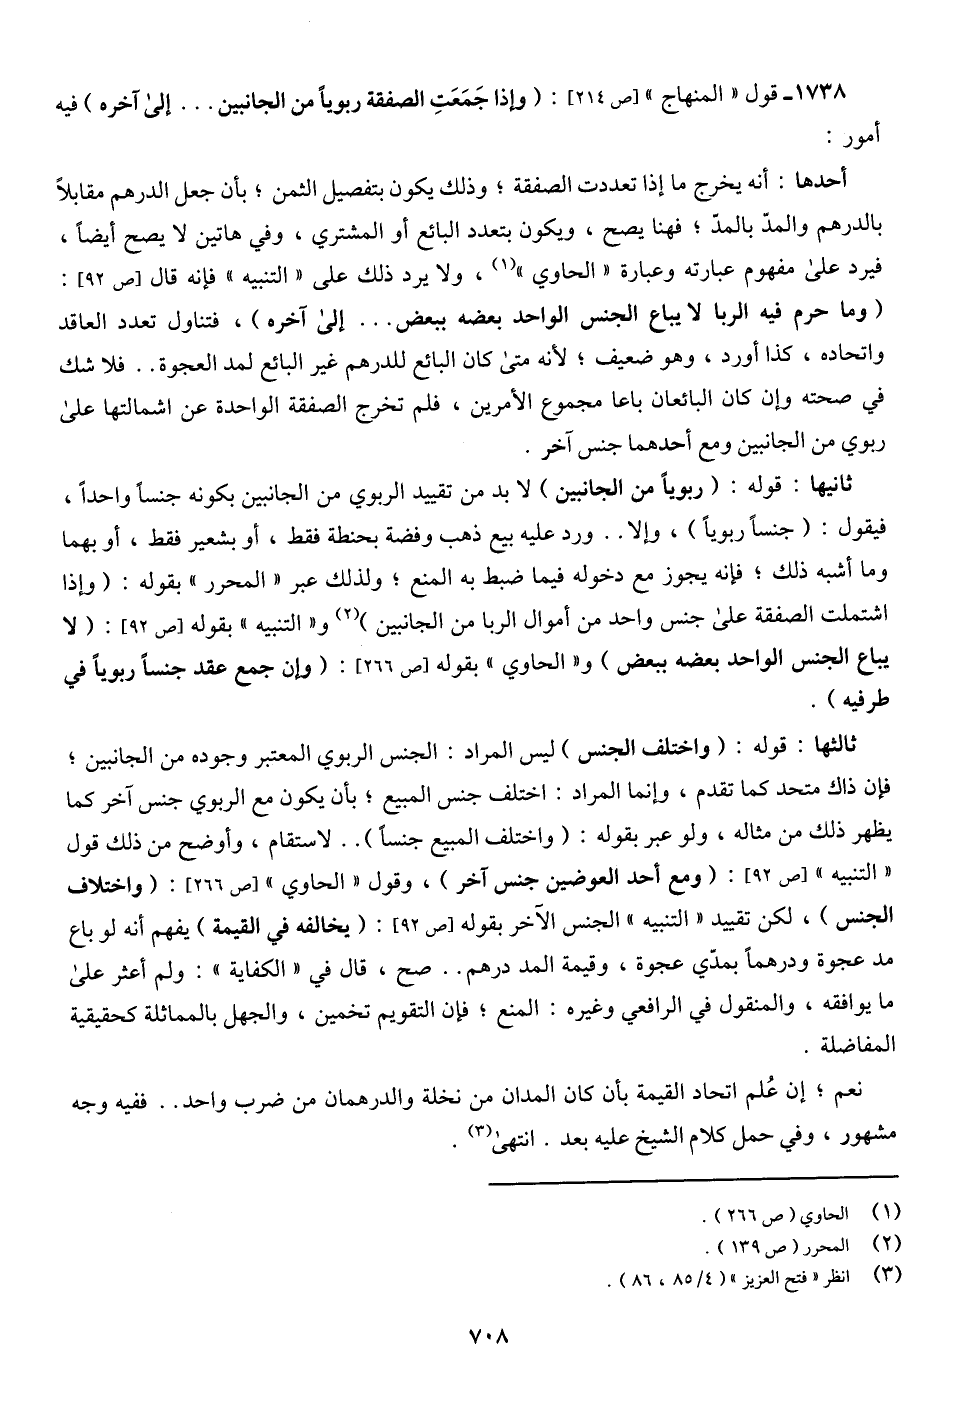 ١٧٣٨ـ قول « المنهاج » [ص ٢١٤] : ( وإذا جَمَعَتِ الصفقة ربوياً من الجانبين . . . إلىٰ آخره ) فيه
أمور :
أحدها : أنه يخرج ما إذا تعددت الصفقة ؛ وذلك يكون بتفصيل الثمن ؛ بأن جعل الدرهم مقابلاً
بالدرهم والمدّ بالمدّ ؛ فهنا يصح ، ويكون بتعدد البائع أو المشتري ، وفي هاتين لا يصح أيضاً ،
فيرد علىٰ مفهوم عبارته وعبارة « الحاوي »(١) ، ولا يرد ذلك على « التنبيه » فإنه قال [ص ٩٢] :
( وما حرم فيه الربا لا يباع الجنس الواحد بعضه ببعض . . . إلىٰ آخره ) ، فتناول تعدد العاقد
واتحاده ، كذا أورد ، وهو ضعيف ؛ لأنه متىٰ كان البائع للدرهم غير البائع لمد العجوة . . فلا شك
في صحته وإن كان البائعان باعا مجموع الأمرين ، فلم تخرج الصفقة الواحدة عن اشمالتها علىٰ
ربوي من الجانبين ومع أحدهما جنس آخر .
ثانيها : قوله : ( ربوياً من الجانبين ) لا بد من تقييد الربوي من الجانبين بكونه جنساً واحداً ،
فيقول : ( جنساً ربوياً ) ، وإلا . . ورد عليه بيع ذهب وفضة بحنطة فقط ، أو بشعير فقط ، أو بهما
وما أشبه ذلك ؛ فإنه يجوز مع دخوله فيما ضبط به المنع ؛ ولذلك عبر « المحرر » بقوله : ( وإذا
اشتملت الصفقة علىٰ جنس واحد من أموال الربا من الجانبين )(٢) و« التنبيه » بقوله [ص ٩٢] : ( لا
يباع الجنس الواحد بعضه ببعض ) و« الحاوي » بقوله [ص ٢٦٦] : ( وإن جمع عقد جنساً ربوياً في
طرفيه ) .
ثالثها : قوله : ( واختلف الجنس ) ليس المراد : الجنس الربوي المعتبر وجوده من الجانبين ؛
فإن ذاك متحد كما تقدم ، وإنما المراد : اختلف جنس المبيع ؛ بأن يكون مع الربوي جنس آخر كما
يظهر ذلك من مثاله ، ولو عبر بقوله : ( واختلف المبيع جنساً ) . . لاستقام ، وأوضح من ذلك قول
« التنبيه » [ص ٩٢] : ( ومع أحد العوضين جنس آخر ) ، وقول « الحاوي » [ص ٢٦٦] : ( واختلاف
الجنس ) ، لكن تقييد « التنبيه » الجنس الآخر بقوله [ص ٩٢] : ( يخالفه في القيمة ) يفهم أنه لو باع
مد عجوة ودرهماً بمدّي عجوة ، وقيمة المد درهم . . صح ، قال في « الكفاية » : ولم أعثر علىٰ
ما يوافقه ، والمنقول في الرافعي وغيره : المنع ؛ فإن التقويم تخمين ، والجهل بالمماثلة كحقيقية
المفاضلة .
نعم ؛ إن عُلم اتحاد القيمة بأن كان المدان من نخلة والدرهمان من ضرب واحد . . ففيه وجه
مشهور ، وفي حمل كلام الشيخ عليه بعد . انتهىٰ(٣) .
(١) الحاوي ( ص ٢٦٦ ) .
(٢) المحرر ( ص ١٣٩ ) .
(٣) انظر « فتح العزيز » ( ٤/ ٨٥ ، ٨٦ ) .
٧٠٨